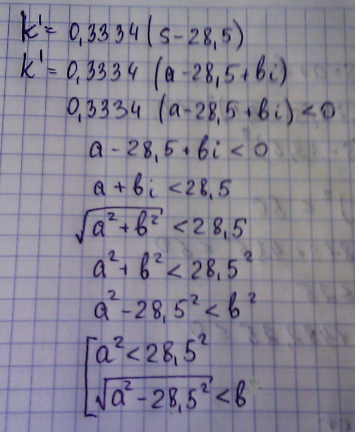 k' = 0,3334(s-28,5)
k' = 0,3334 (a-28,5+bi)
0,3334 (a-28,5+bi)<0
a - 28,5+bi < 0
a + bi < 28,5
√(a²+b²) < 28,5
a²+ b² < 28,5²
a² - 28,5² < b²
[a² < 28,5²
√(a² - 28,5²) < b